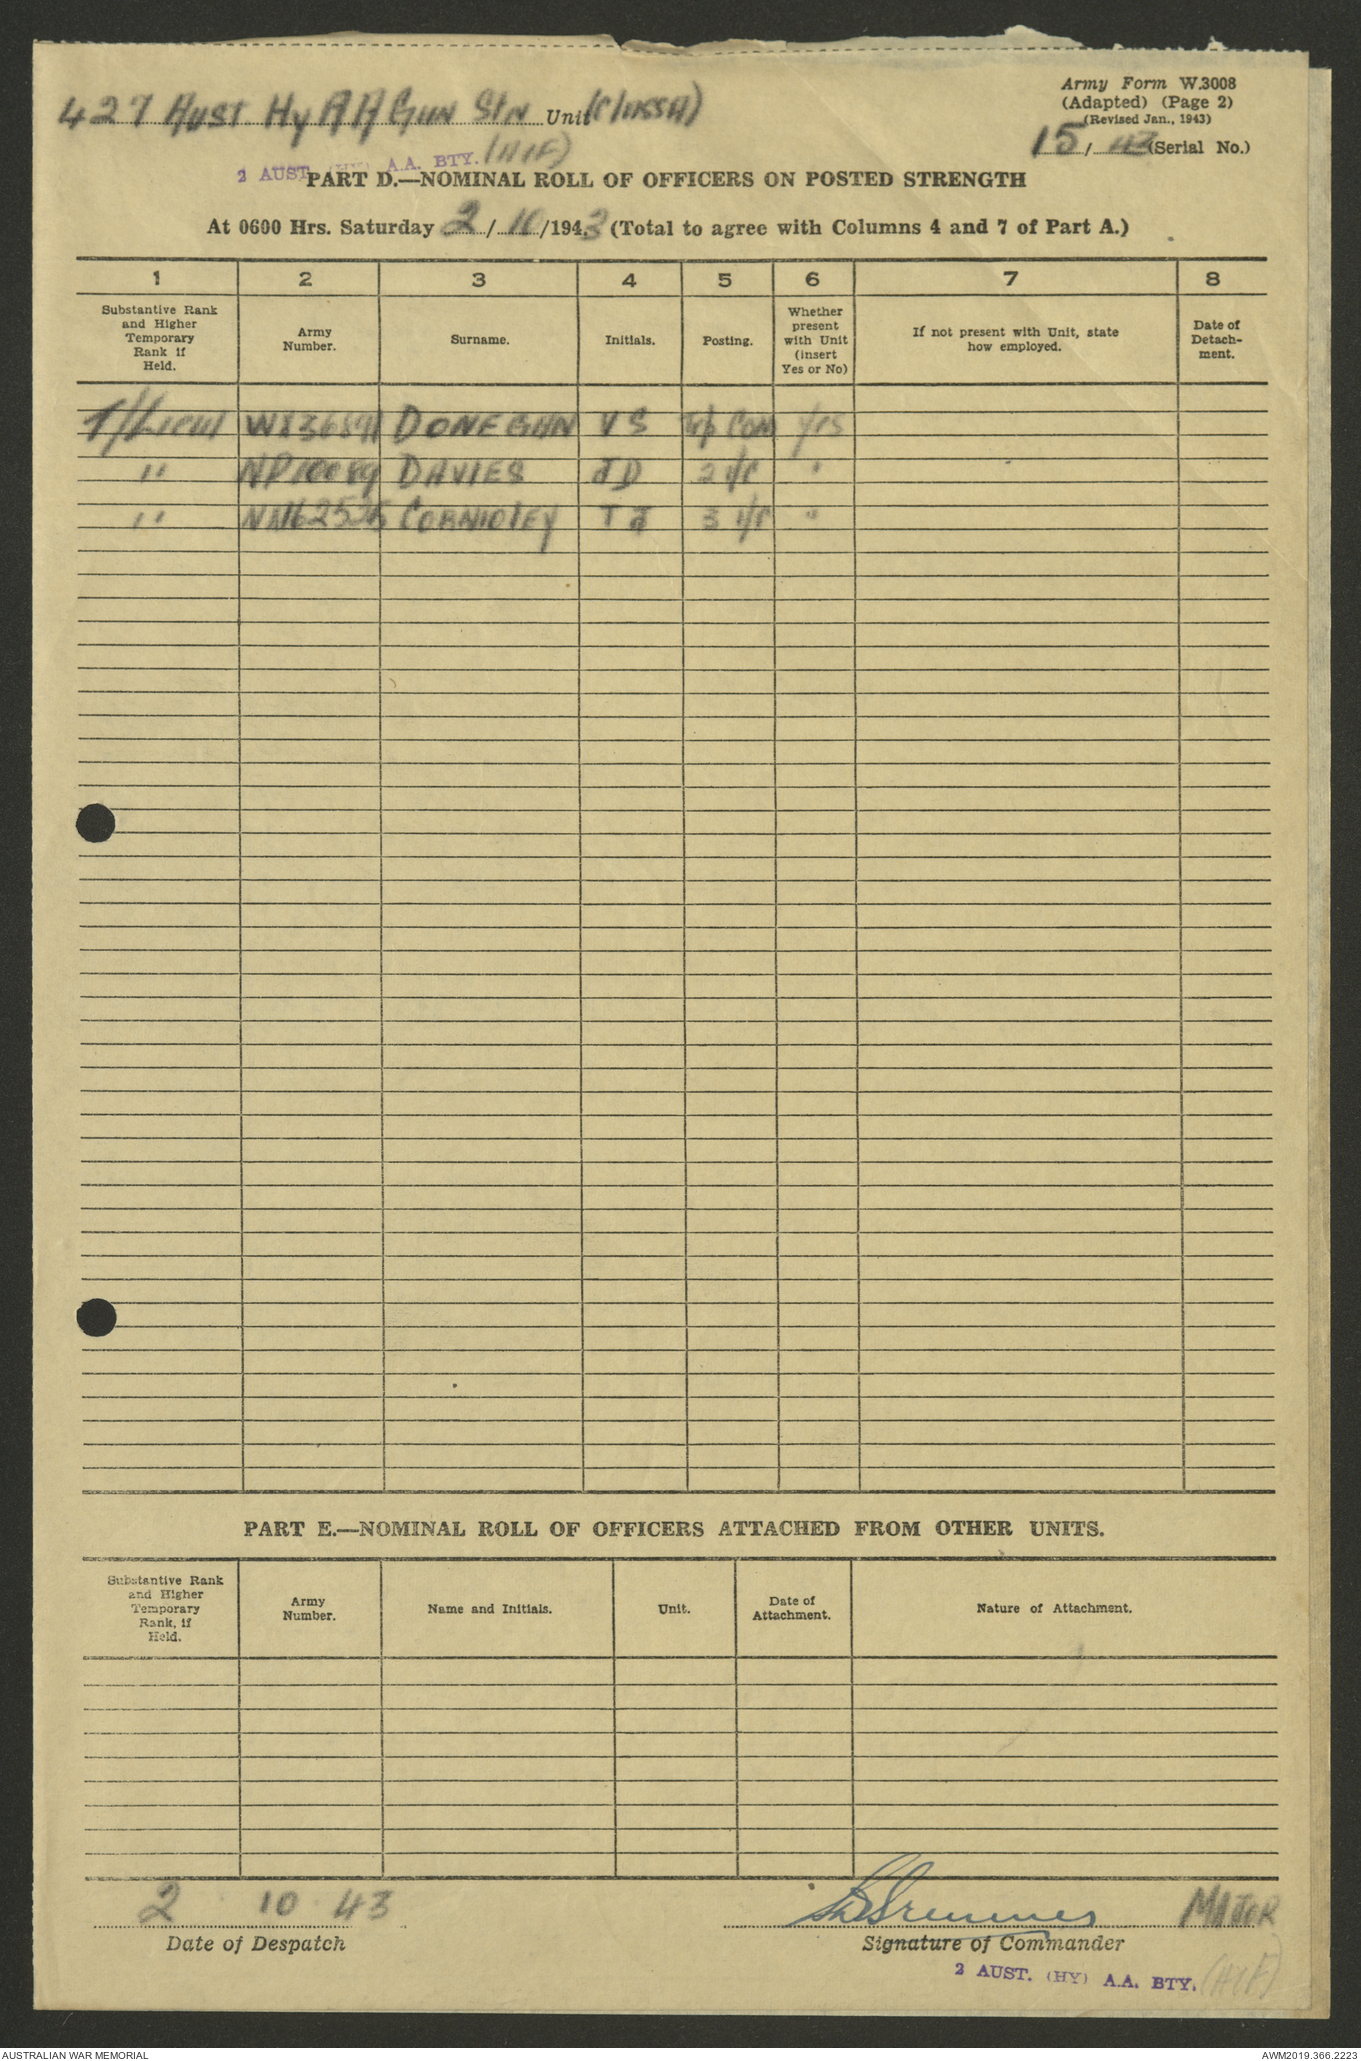 Army Form W.3008
(Adapted) (Page 2)
(Revised Jan., 1943)
427 AUST Hy AA GUN STN Unit (CLASS A)
15/43 (Serial No.)
2 AUST. (HY) A.A. BTY. (AIF)
PART D.—NOMINAL ROLL OF OFFICERS ON POSTED STRENGTH
At 0600 Hrs. Saturday 2/10/1943 (Total to agree with Columns 4 and 7 of Part A.)
1 2 3 4 5 6 7 8
Substantive Rank and Higher Temporary Rank if Held. Army Number. Surname. Initials. Posting. Whether present with Unit (insert Yes or No) If not present with Unit, state how employed. Date of Detach-ment.
T/Lieut DONEGAN V S Tp Com Yes
" DAVIES J D 2 i/c "
" T J 3 i/c "
PART E.—NOMINAL ROLL OF OFFICERS ATTACHED FROM OTHER UNITS.
Substantive Rank and Higher Temporary Rank, if Held. Army Number. Name and Initials. Unit. Date of Attachment. Nature of Attachment.
2 10 43 MAJOR
Date of Despatch Signature of Commander
2 AUST. (HY) A.A. BTY. (AIF)
AUSTRALIAN WAR MEMORIAL AWM2019.366.2223